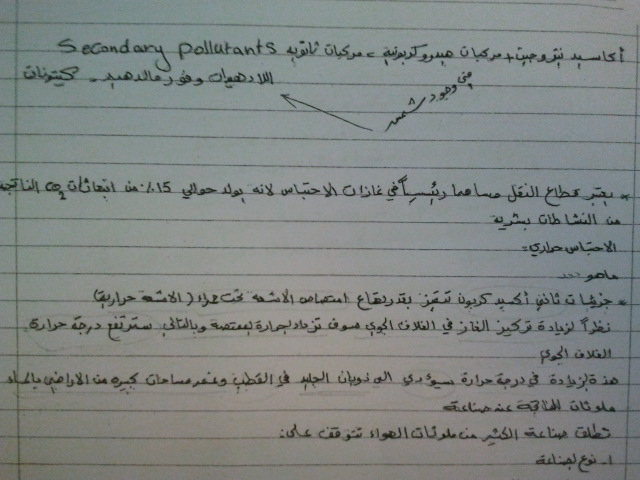 أكاسيد نتروجين + مركبات هيدروكربونية = مركبات ثانوية Secondary pollutants
الادهيدات وفورمالدهيد - كيتونات
في وجود شمس
* يعتبر قطاع النقل مساهما رئيسياً في غازات الاحتباس لانه يولد حوالي 15٪ من انبعاثات CO2 الناتجة
من النشاطات بشرية
الاحتباس حراري:
ماهو ...
* جزئيات ثاني أكسيد كربون تتميز بقدرتها امتصاص الاشعة تحت حمراء (الاشعة حرارية)
نظراً لزيادة تركيز الغاز في الغلاف الجوي سوف تزداد لحرارة لممتصة وبالتالي سترتفع درجة حرارة
الغلاف الجوي
هذه لزيادة في درجة حرارة سيؤدي الى ذوبان الجليد في القطب وغمر مساحات كبيرة من الاراضي بالماء
ملوثات الناتجة عن صناعة
تطلق صناعة الكثير من ملوثات الهواء تتوقف على:
1- نوع لصناعة